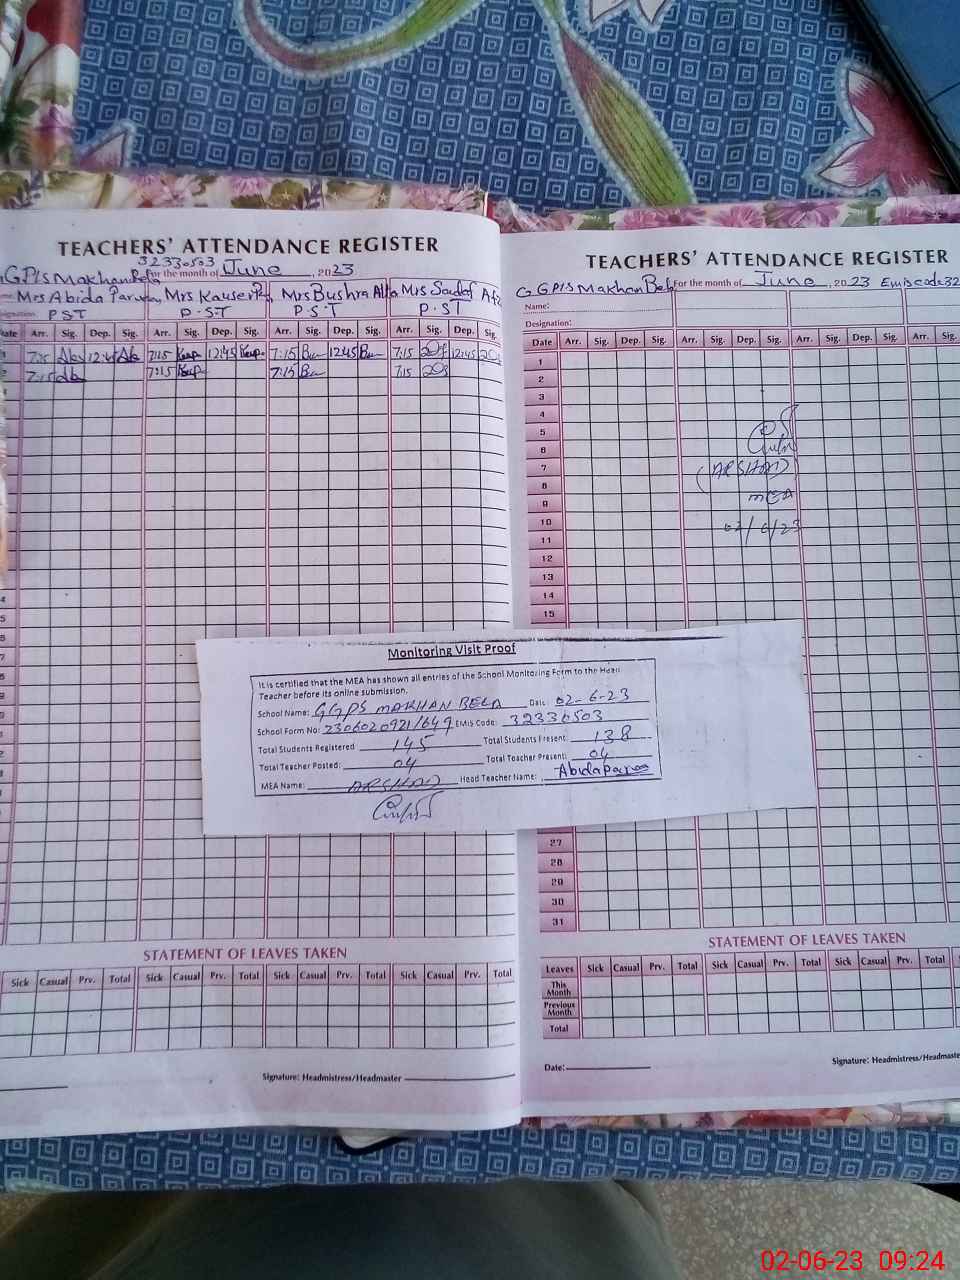 TEACHERS' ATTENDANCE REGISTER
32330503
GGPIS Makhan Bela For the month of June, 2023
Mrs Abida Parveen Mrs Kauser P Mrs Bushra Mrs Sadaf
Designation PST P.S.T P.S.T P.ST
Date Arr. Sig. Dep. Sig. Arr. Sig. Dep. Sig. Arr. Sig. Dep. Sig. Arr. Sig. Dep. Sig.
7:15 12:45 7:15 12:45 7:15 12:45 7:15 12:45
7:15 7:15 7:15 7:15
STATEMENT OF LEAVES TAKEN
Sick Casual Prv. Total Sick Casual Prv. Total Sick Casual Prv. Total Sick Casual Prv. Total
Signature: Headmistress/Headmaster
TEACHERS' ATTENDANCE REGISTER
GGPIS Makhan Bela For the month of June, 2023 Emiscode 32
Name:
Designation:
Date Arr. Sig. Dep. Sig. Arr. Sig. Dep. Sig. Arr. Sig. Dep. Sig. Arr. Sig.
1
2
3
4
5
6
7
(ARSHAD)
8
MEA
9
10
02/6/23
11
12
13
14
15
Monitoring Visit Proof
It is certified that the MEA has shown all entries of the School Monitoring Form to the Head
Teacher before its online submission.
School Name: GGPS MAKHAN BELA Date: 02-6-23
School Form No: 23060209211649 EMIS Code: 32330503
Total Students Registered 145 Total Students Present: 138
Total Teacher Posted: 04 Total Teacher Present: 04
MEA Name: ARSHAD Head Teacher Name: Abida Parveen
27
28
29
30
31
STATEMENT OF LEAVES TAKEN
Leaves Sick Casual Prv. Total Sick Casual Prv. Total Sick Casual Prv. Total
This Month
Previous Month
Total
Date:
Signature: Headmistress/Headmaste
02-06-23 09:24